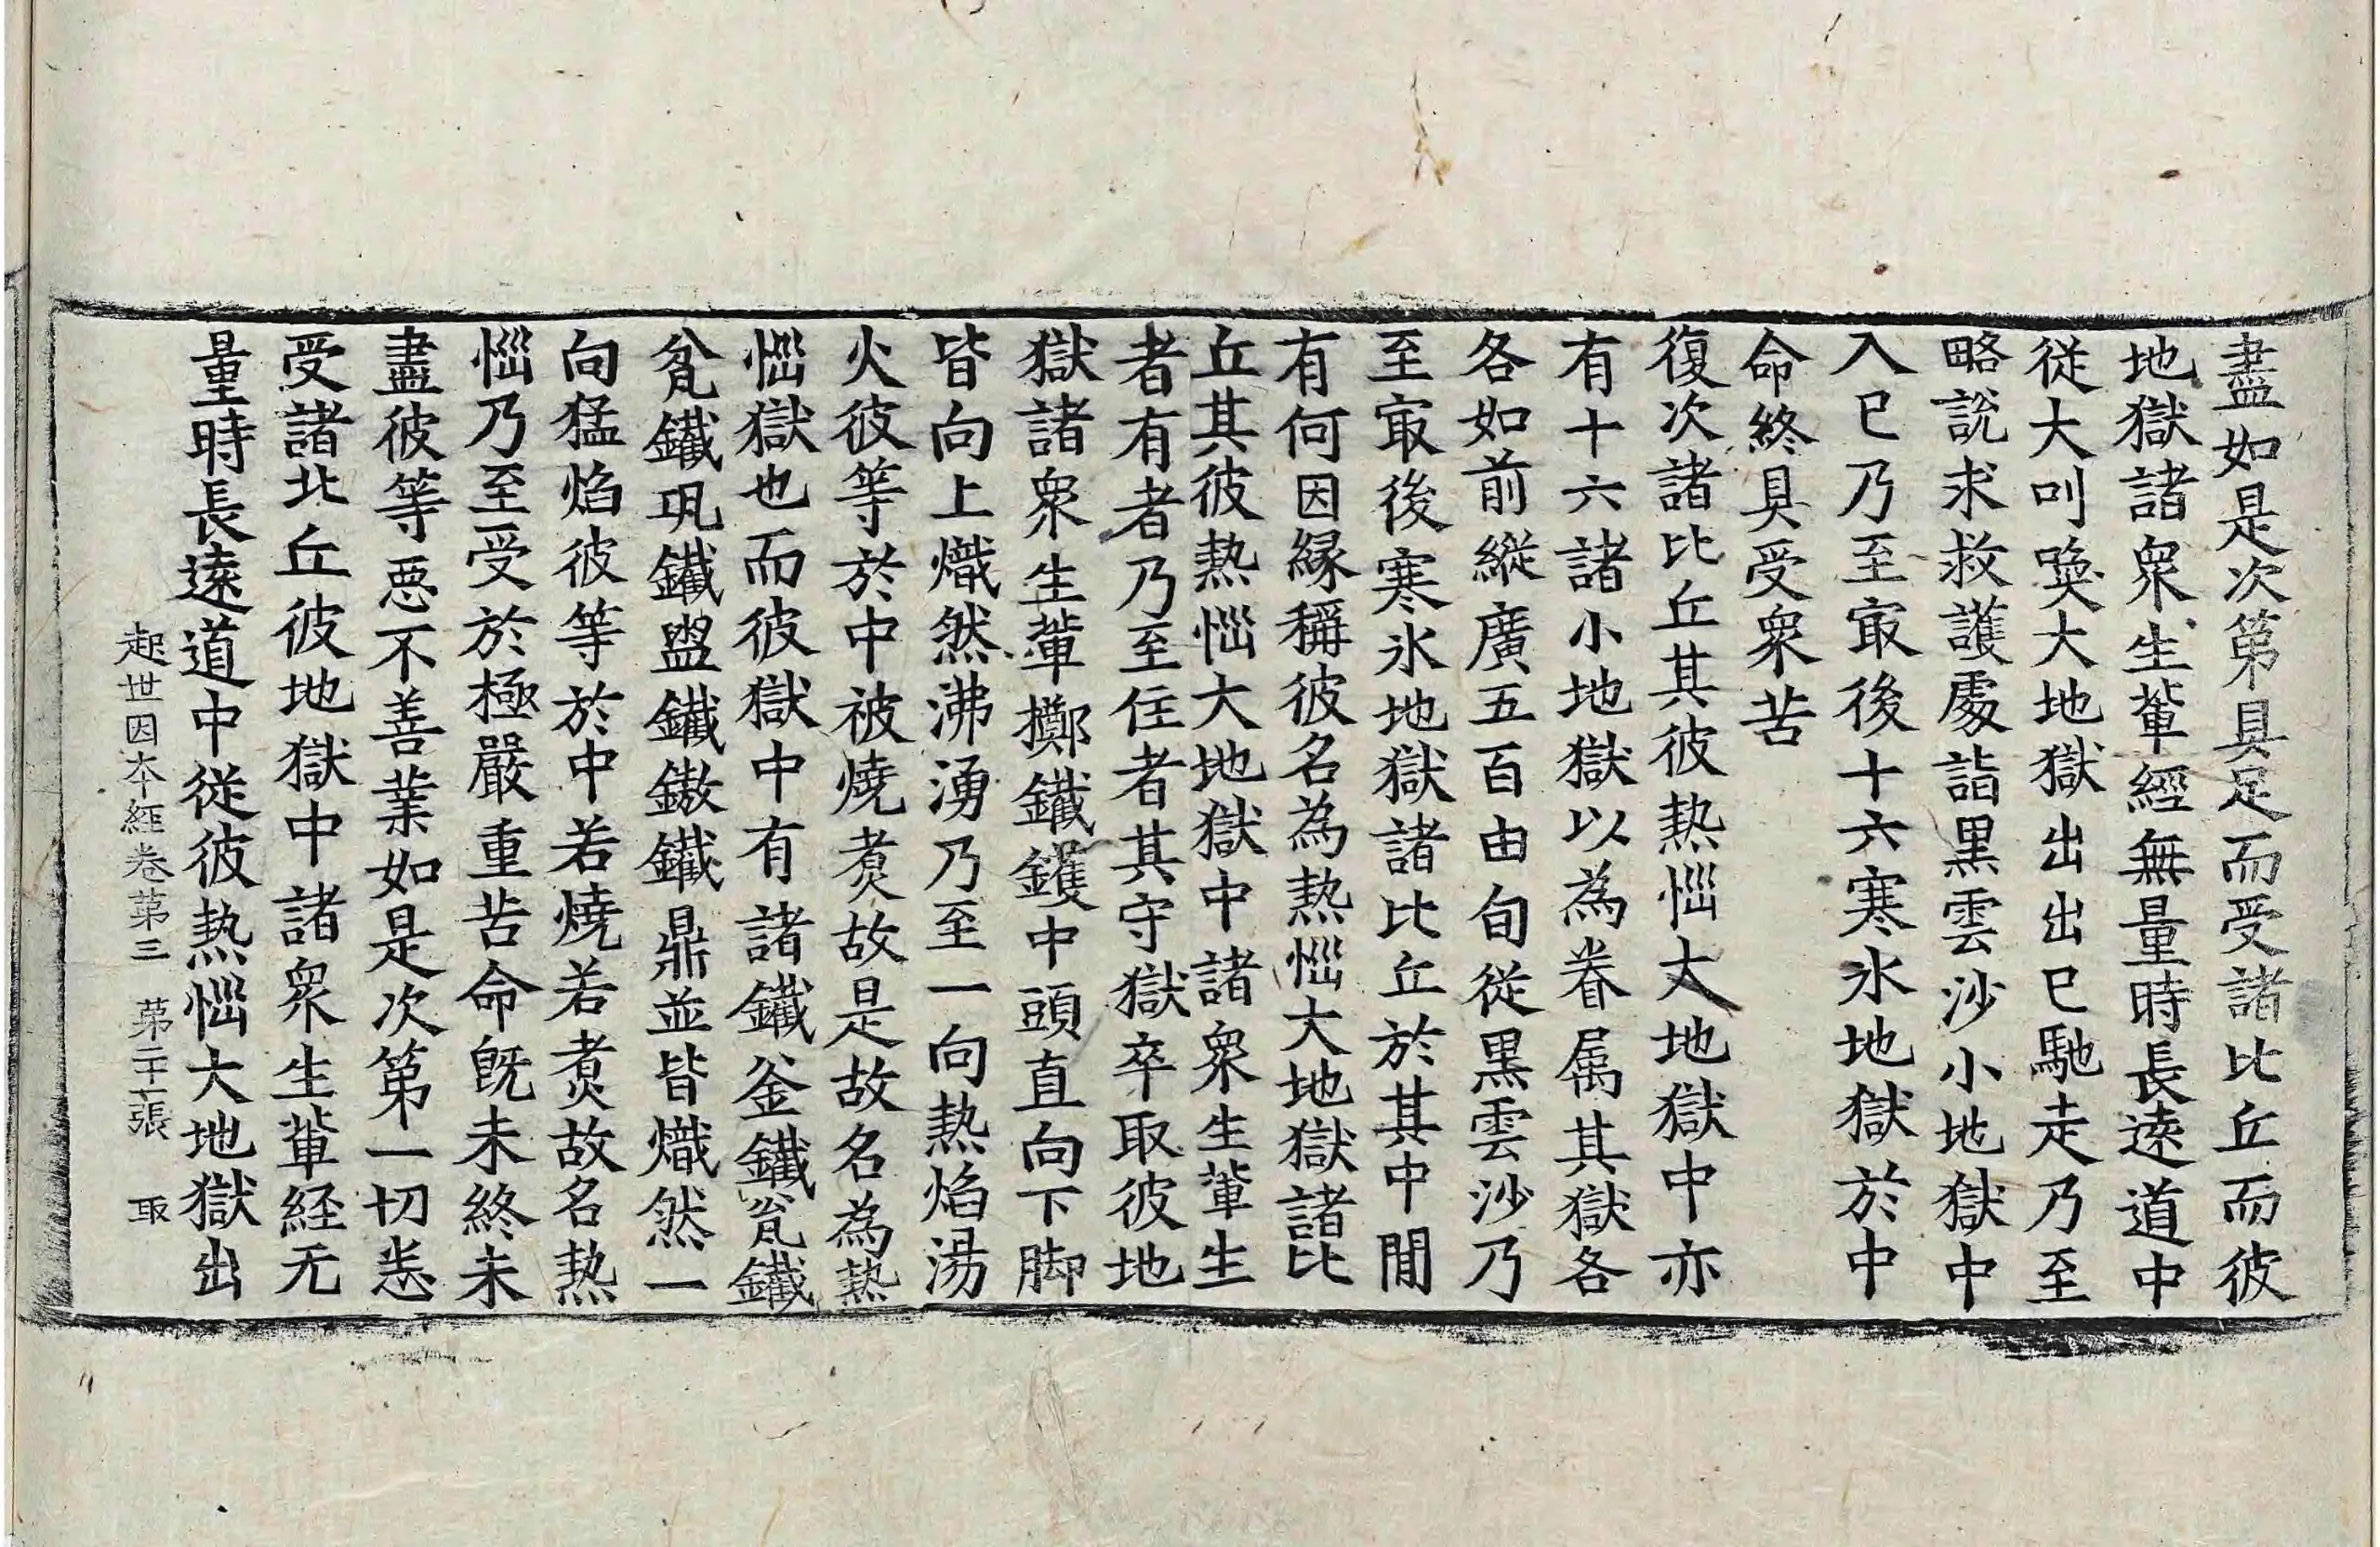 盡如是次第具足而受諸比丘而彼
地獄諸衆生輩經無量時長遠道中
從大叫喚大地獄出出已馳走乃至
略說求救護處詣黑雲沙小地獄中
入已乃至㝡後十六寒氷地獄於中
命終具受衆苦
復次諸比丘其彼熱惱大地獄中亦
有十六諸小地獄以為眷属其獄各
各如前縱廣五百由旬從黑雲沙乃
至㝡後寒氷地獄諸比丘於其中閒
有何因緣稱彼名為熱惱大地獄諸比
丘其彼熱惱大地獄中諸衆生輩生
者有者乃至住者其守獄卒取彼地
獄諸衆生輩擲鐵鑊中頭直向下脚
皆向上熾然沸湧乃至一向熱焰湯
火彼等於中被燒煑故是故名為熱
惱獄也而彼獄中有諸鐵釜鐵瓮鐵
瓫鐵瓨鐵㿻鐵鏊鐵鼎並皆熾然一
向猛焰彼等於中若燒若煑故名熱
惱乃至受於極嚴重苦命旣未終未
盡彼等惡不善業如是次第一切悉
受諸比丘彼地獄中諸衆生輩経无
量時長遠道中從彼熱惱大地獄出
起世因本經卷第三 第二十一張 取